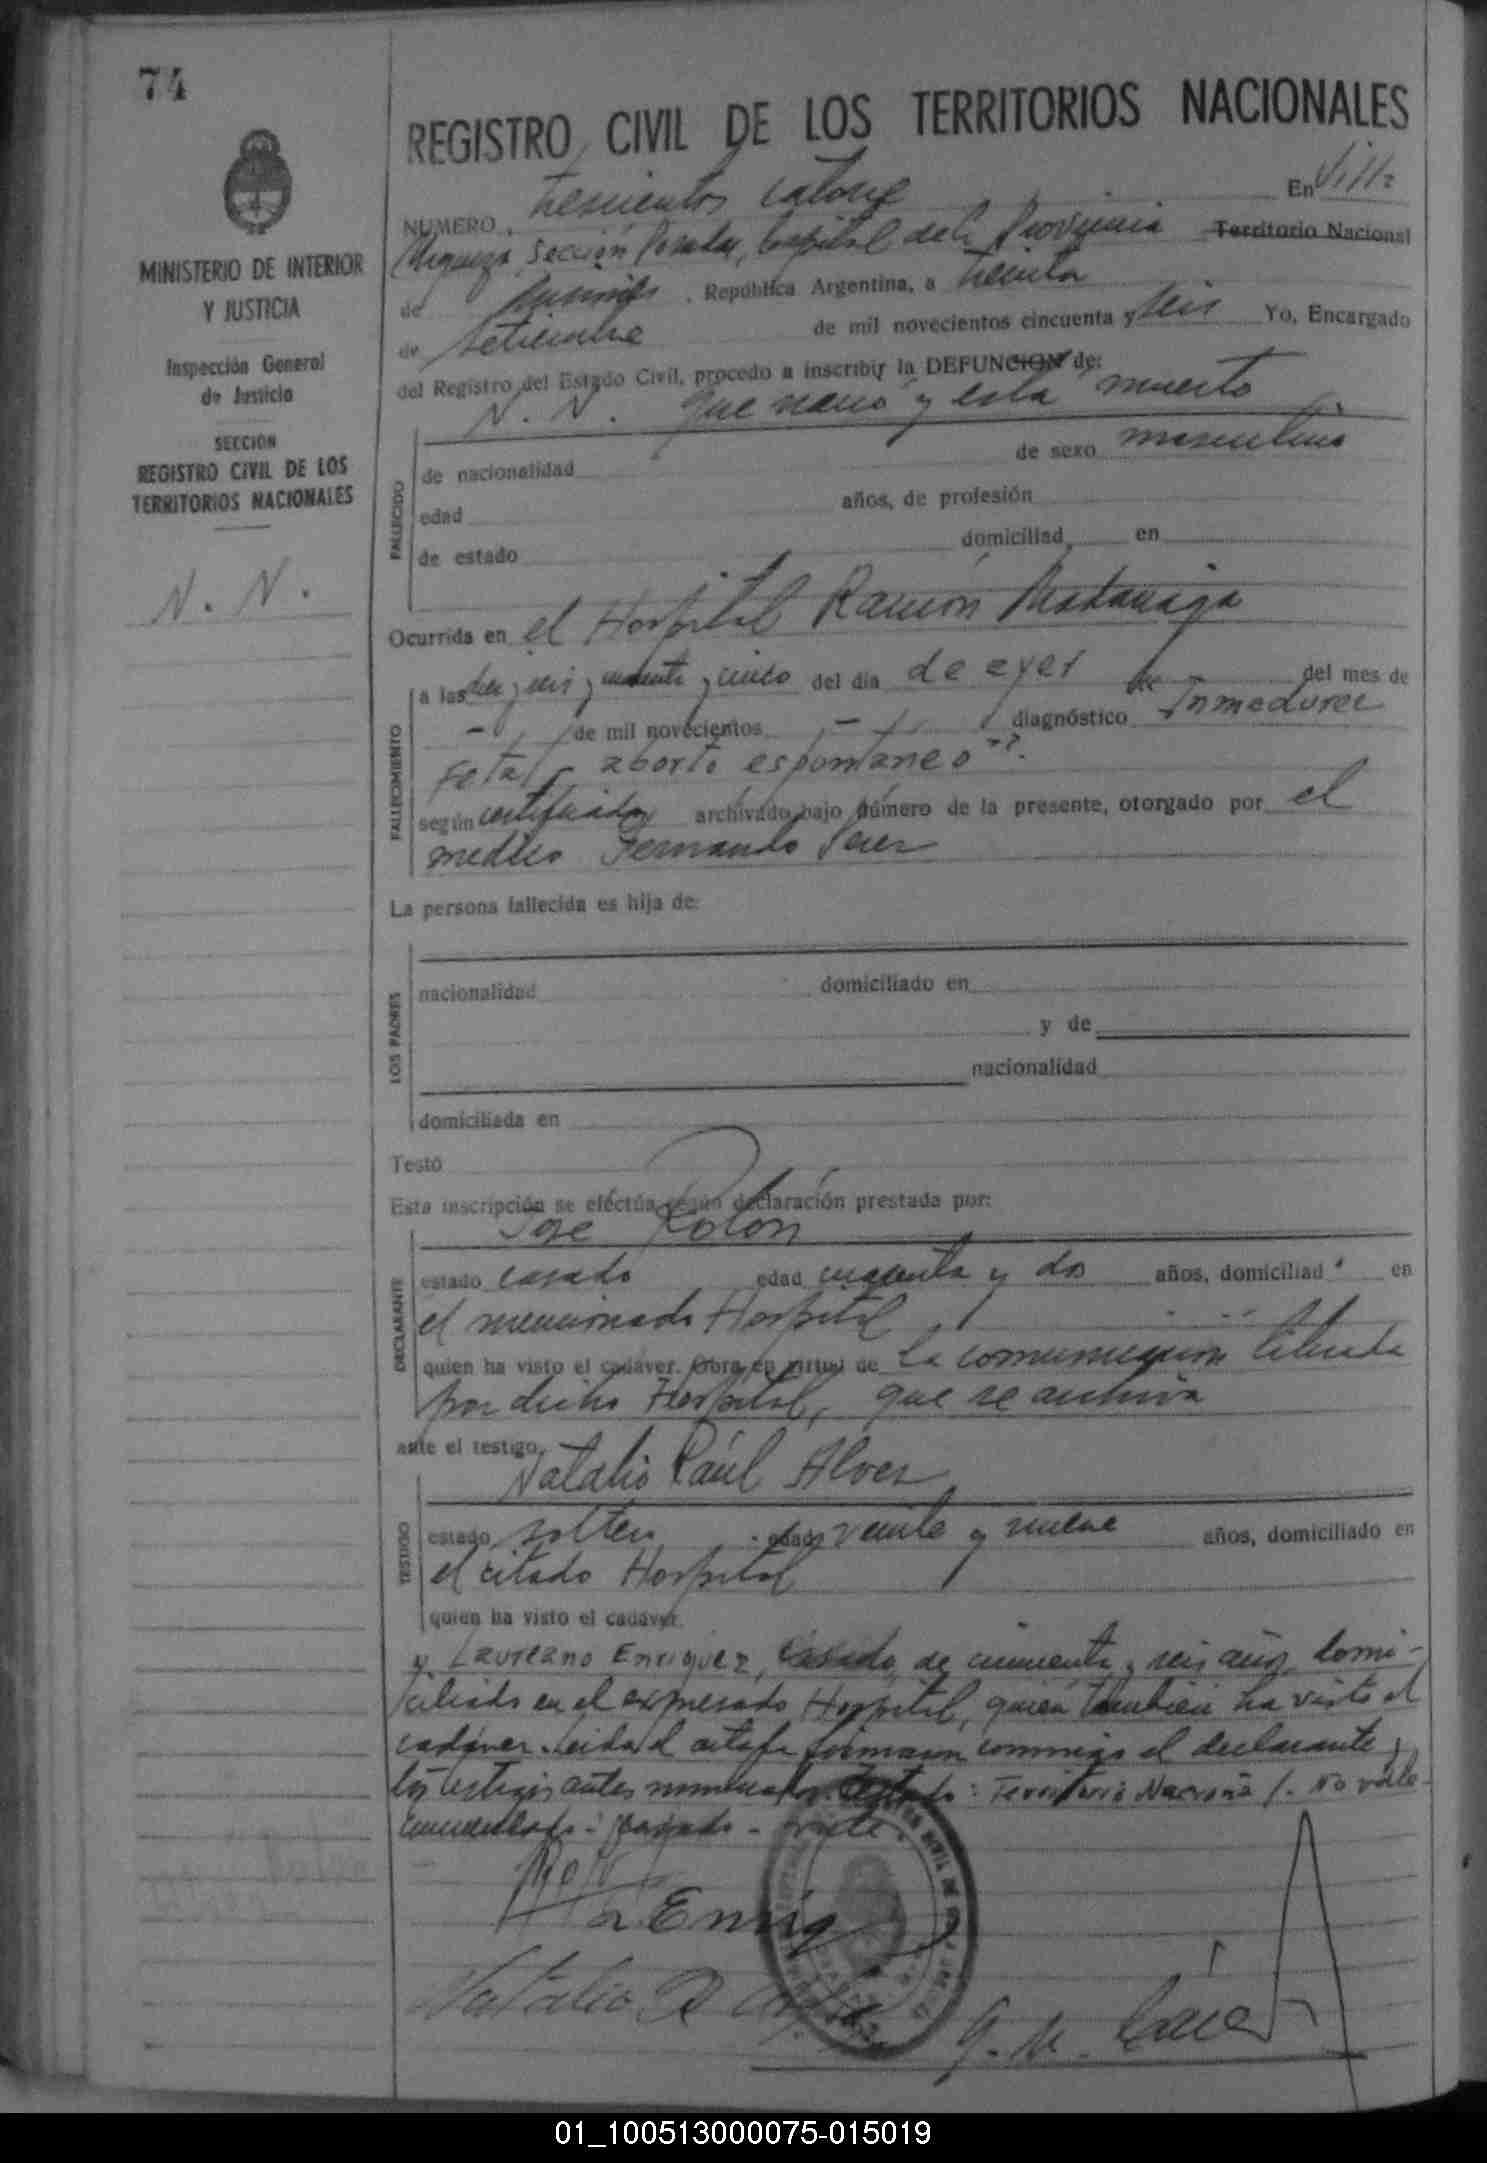 74
REGISTRO CIVIL DE LOS TERRITORIOS NACIONALES
MINISTERIO DE INTERIOR
Y JUSTICIA
Inspección General
de Justicia
SECCION
REGISTRO CIVIL DE LOS
TERRITORIOS NACIONALES
N. N.
NUMERO trescientos catorce En Villa
Sección Posadas, Capital de la Provincia Territorio Nacional
de Misiones, República Argentina, a treinta
de setiembre de mil novecientos cincuenta y seis Yo, Encargado
del Registro del Estado Civil, procedo a inscribir la DEFUNCION de:
N. N. que nació y está muerto
FALLECIDO
de nacionalidad de sexo masculino
edad años, de profesión
de estado domiciliad en
Ocurrida en el Hospital Ramón Madariaga
FALLECIMIENTO
a las diez y seis y cuarenta y cinco del día de ayer del mes de
- de mil novecientos - diagnóstico Inmadurez
Fetal - aborto espontáneo".
según certificado archivado bajo número de la presente, otorgado por el
médico Fernando
La persona fallecida es hija de:
LOS PADRES
nacionalidad domiciliado en
y de
nacionalidad
domiciliada en
Testó
Esta inscripción se efectúa según declaración prestada por:
José Rolón
DECLARANTE
estado casado edad cuarenta y dos años, domiciliado en
el mencionado Hospital
quien ha visto el cadáver. Obra en virtud de la comunicación librada
por dicho Hospital, que se archiva
ante el testigo,
Natalio Raúl Alvez
TESTIGO
estado soltero edad veinte y nueve años, domiciliado en
el citado Hospital
quien ha visto el cadáver.
y Laureano Enriquez, casado, de cincuenta y seis años, domi-
ciliado en el expresado Hospital, quien también ha visto el
cadáver. Leída el acta firmaron conmigo el declarante y
los testigos antes nombrados. Testado: Territorio Nacional. No vale
enmendado:
Natalio R.
01_100513000075-015019